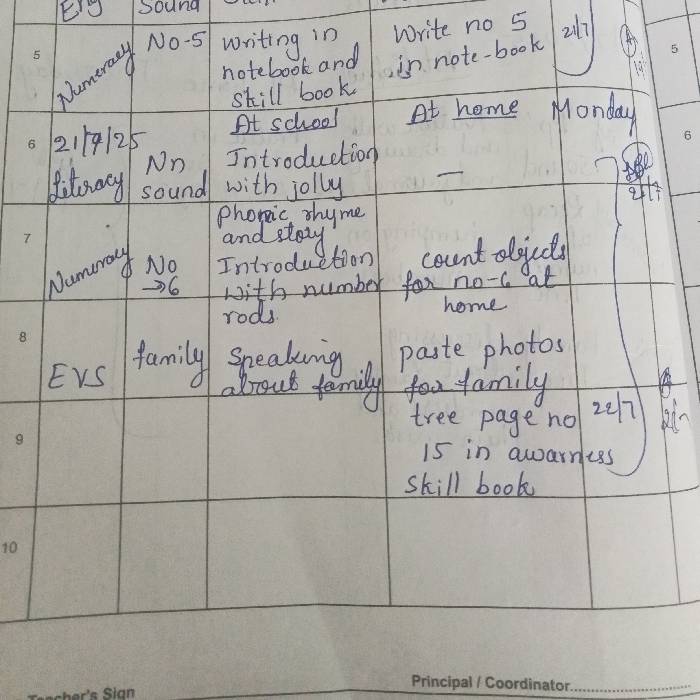 Eng Sound
5 Numeracy No-5 writing in Write no 5 21/7 5
notebook and in note-book
skill book
At school At home Monday
6 21/7/25 6
Literacy Nn Introduction —
sound with jolly
Phonic rhyme
7 and story
Numeracy No Introduction count objects
→6 with number for no-6 at
rods. home
8 EVS family Speaking paste photos
about family for family
tree page no 22/7
9 15 in awarness
skill book
10
Teacher's Sign Principal / Coordinator